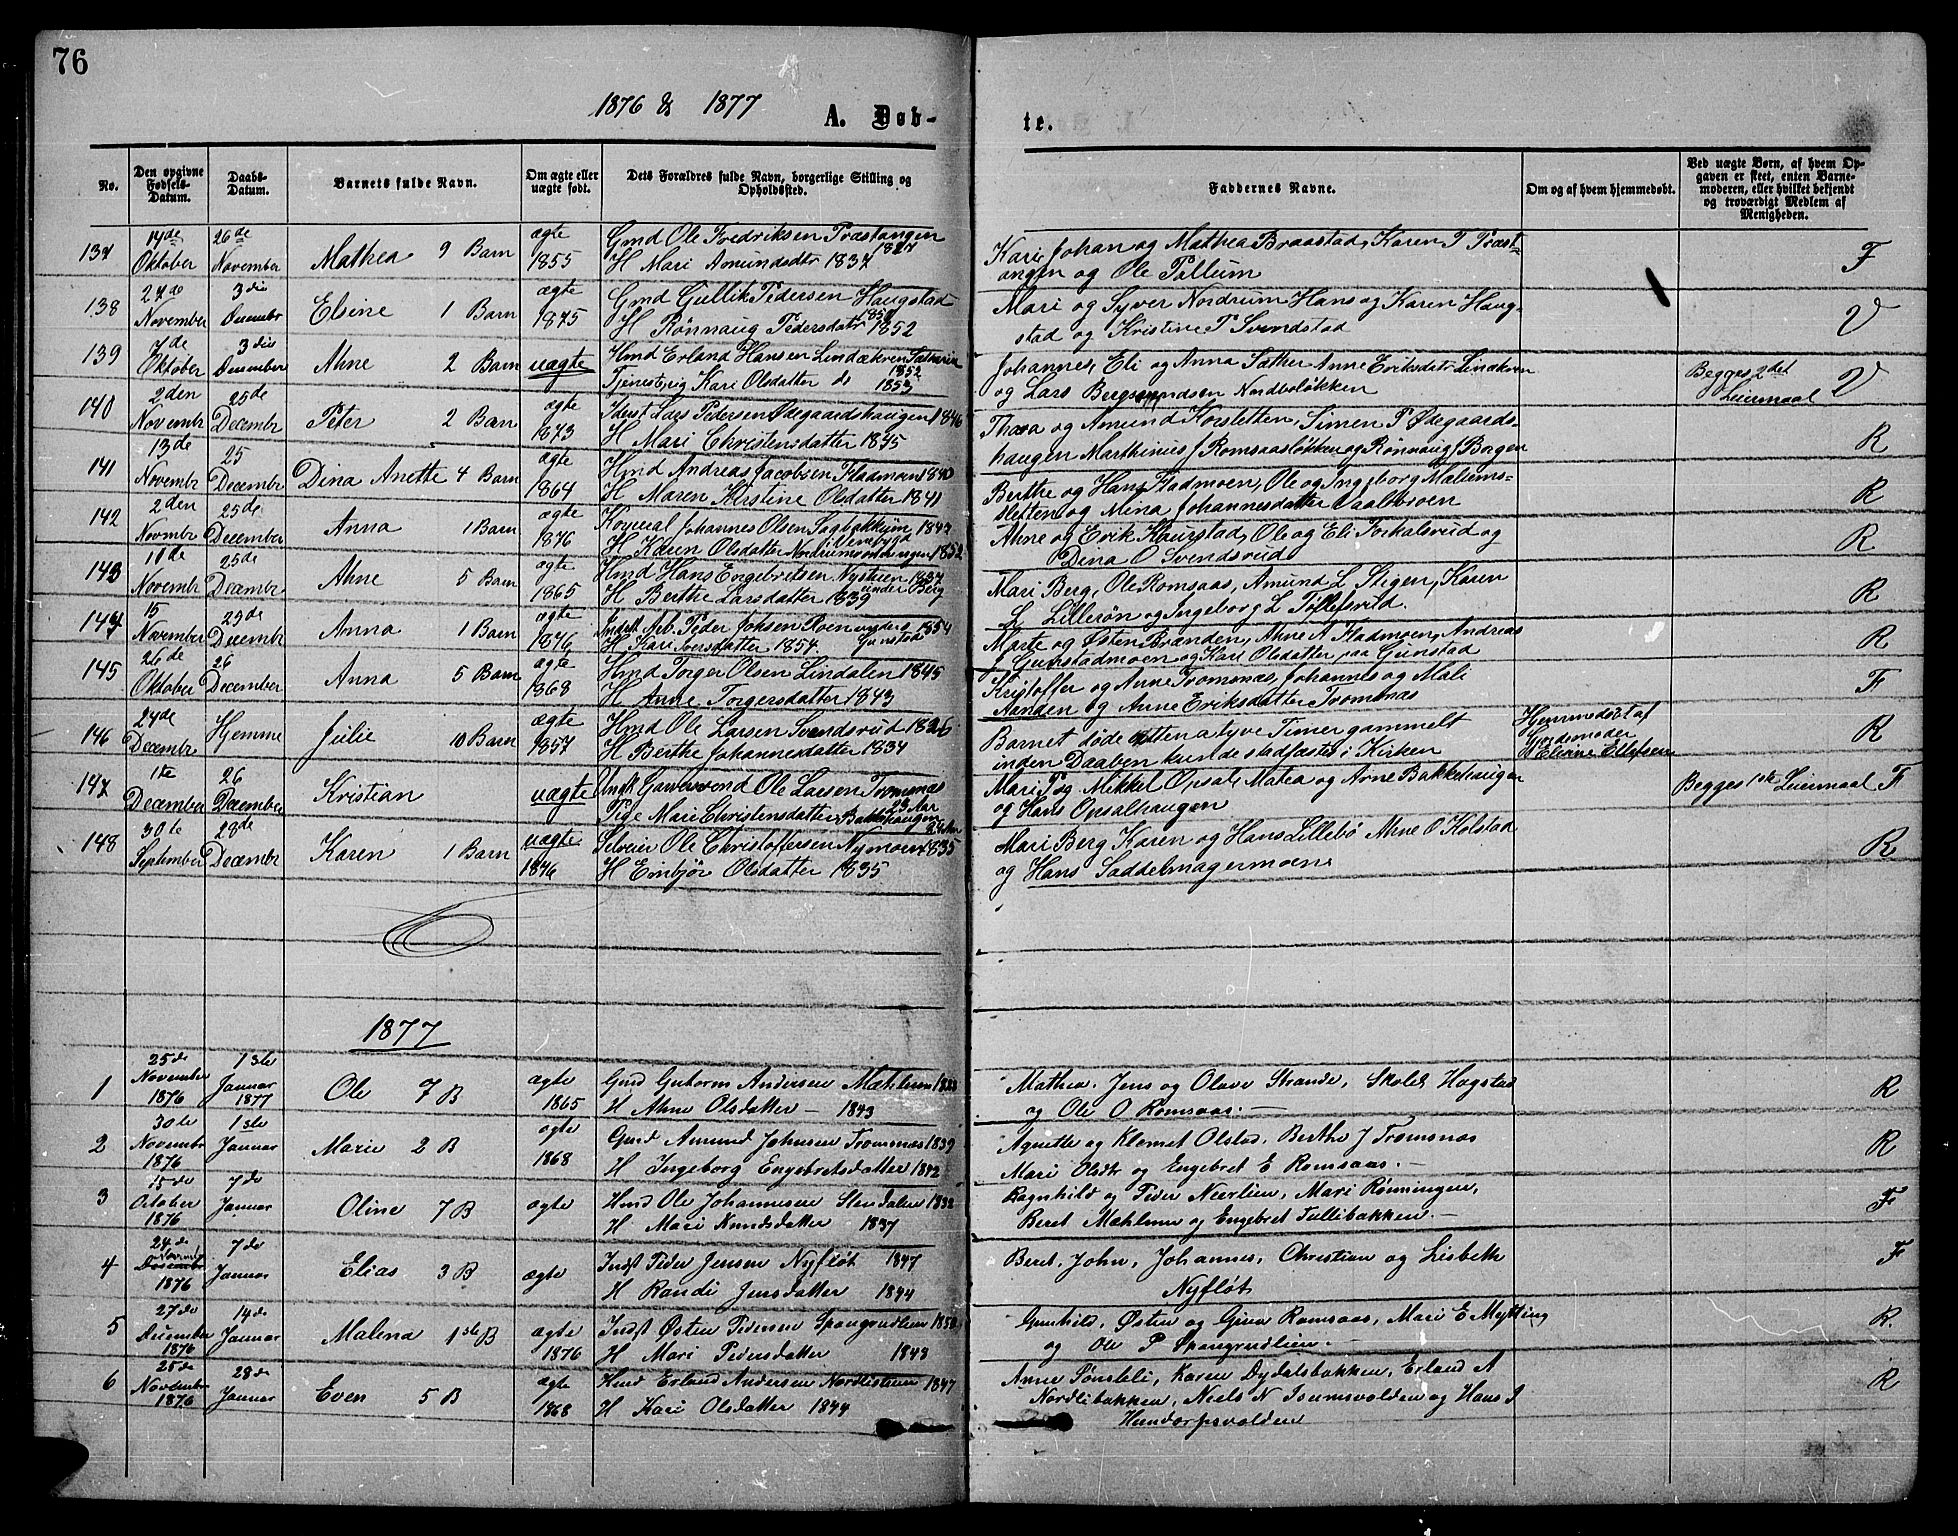 76
1876 & 1877
A. Døb-
te.
No.
Den opgivne Fødsels-Datum.
Daabs-Datum.
Barnets fulde Navn.
Om ægte eller uægte født.
Dets Forældres fulde Navn, borgerlige Stilling og Opholdssted.
Faddernes Navne.
Om og af hvem hjemmedøbt.
Ved uægte Børn, af hvem Opgaven er skeet, enten Barnemoderen, eller hvilket bekjendt og troværdigt Medlem af Menigheden.
137 14de Oktober 26de November Mathea 9 Barn ægte 1855
Gmd Ole Fredriksen Præstangen 1827
H Mari Amundsdtr 1837
Kari Johan og Mathea Braastad, Karen T Præst-
angen og Ole Pallum F
138 27de November 3die Decembr Elsine 1 Barn ægte 1875
Gmd Gullik Pedersen Haugstad 1850
H Rønnaug Pedersdatr 1852
Mari og Syver Nordrum Hans og Karen Haug-
stad og Kristine P Svendstad V
139 7de Oktober 3die December Ahne 2 Barn uægte
Hmd Erland Hansen Lindækren 1852
Tjenestpig Kari Olsdatter ds 1853
Johannes, Eli og Anna Sæther Anne Eriksdatr Lindekren
og Lars Bergsvendsen Nordboløkken
Begges 2det Leiermaal V
140 2den Novembr 25de Decembr Peter 2 Barn ægte 1873
Lars Pedersen Ødegaardshaugen 1846
H Mari Christensdatter 1845
Thora og Amund Korsletten, Simen P Ødegaards-
haugen Marthinius J Romsaasløkken og Rønnaug J Borgen R
141 13de Novembr 25 Decembr Dina Anette 4 Barn ægte 1864
Hmd Andreas Jacobsen Fladmoen 1840
H Maren Kirstine Olsdatter 1841
Berthe og Hans Fladmoen, Ole og Ingeborg Maliums-
sletten og Mina Johannesdatter Vaalbroen R
142 2den Novmbr 25de December Anna 1 Barn ægte 1876
Johannes Olsen Sagbakkum 1843
H Karen Olsdatter i Venebygd 1852
Ahne og Erik Haurstad, Ole og Eli Forkalsrud og
Dina O Svendsrud R
143 11de Novembr 25de Decembr Ahne 5 Barn ægte 1865
Hmd Hans Engebretsen Nystuen 1837
H Berthe Larsdatter 1839 under Berg
Mari Berg, Ole Romsaas, Amund L Stigen, Karen
L Lillerøn og Ingeborg L Tøllefsrud. R
144 15 Novembr 29de Decembr Anna 1 Barn ægte 1876
Arb. Peder Johsen Roen under Gunstad 1854
H Kari Iversdatter 1854
Marte og Østen Brænden, Ahne A Fladmoen, Andreas
J Gunstadmoen og Kari Olsdatter paa Gunstad R
145 26de Oktober 26 December Anna 5 Barn ægte 1868
Hmd Torger Olsen Lindalen 1845
H Anne Torgersdatter 1843
Kristoffer og Anne Tromsnæs, Johannes og Mali
Aanden og Anne Eriksdatter Tromsnæs F
146 24de Decembr Hjemme Julie 10 Barn ægte 1857
Hmd Ole Larsen Svendsrud 1826
H Berthe Johannesdatter 1834
Barnet døde otten atyve Timer gammelt
inden Daaben kunde stadfæstes i Kirken
Hjemmedøbt af Jordemoder Eliane Ellefsen R
147 1te December 26 December Kristian uægte
Ungk Ole Larsen Tromsnæs 23 Aar
Pige Mari Christensdatter Bakkehaugen
Mari P og Mikkel Opsal Matea og Arne Bakkehaugen
og Hans Opsalhaugen
Begges 1ste Leiermaal F
148 30te September 28de Decembr Karen 1 Barn uægte 1876
Selveier Ole Christoffersen Nymoen 1835
H Embjør Olsdatter 1835
Mari Berg Karen og Hans Lillebø Ahne O Kolstad
og Hans Saddelmagermoen R
1877
1 25de November 1876 1ste Januar 1877 Ole 7 B ægte 1865
Gmd Guttorm Andersen Mæhlum 1833
H Ahne Olsdatter - 1843
Mathea, Jens og Olave Strande, Skolel Hagstad
og Ole O Romsaas. R
2 30de Novembr 1876 1ste Januar Marie 2 B ægte 1868
Gmd Amund Johnsen Tromsnæs 1839
H Ingeborg Engebretsdatter 1842
Agnette og Klemet Olstad, Berthe J Tromsnæs
Mari Olsdtr og Engebret E Romsaas. R
3 15de October 1876 7de Januar Oline 7 B ægte
Hmd Ole Johannesen Stendalen 1832
H Mari Knudsdatter 1837
Ragnhild og Peder Neerlien, Mari Rønningen,
Beret Mæhlum og Engebret Tullibakken F
4 24de Novembr December 1876 7de Januar Elias 3 B ægte
Indst Peder Jensen Nyfløt 1847
H Randi Jensdatter 1844
Beret, John, Johannes, Christian og Lisbeth
Nyfløt F
5 27de December 1876 14de Januar Malena 1ste B ægte 1876
Indst Østen Pedersen Spangrudlien 1850
H Mari Pedersdatter 1848
Gunhild, Østen og Gina Romsaas, Mari E Mytting
og Ole P Spangrudlien R.
6 25de Novembr 1876 28de Januar Even 5 B ægte 1868
Hmd Erland Andersen Nordlistuen 1847
H Kari Olsdatter 1844
Anne Pønsleli, Karen Dydalsbakken, Erland A
Nordlibakken, Niels N Isumsvolden og Hans I
Hundorpsvolden R